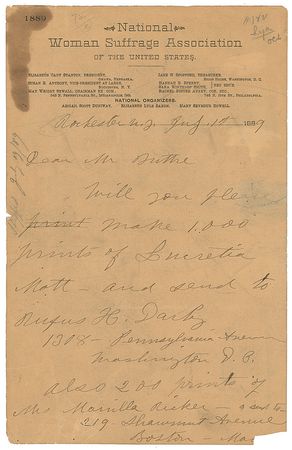 1889
National
Woman Suffrage Association
OF THE UNITED STATES.
ELIZABETH CADY STANTON, PRESIDENT,
OMAHA, NEBRASKA.
SUSAN B. ANTHONY, VICE-PRESIDENT AT LARGE,
ROCHESTER, N. Y.
MAY WRIGHT SEWALL, CHAIRMAN EX. COM.
JANE H. SPOFFORD, TREASURER,
RIGGS HOUSE, WASHINGTON, D. C.
NATIONAL ORGANIZERS.
ABIGAIL SCOTT DUNIWAY,
MARY SEYMOUR HOWELL.
Rochester N.Y. 1889
Dear Mr
Will you please
print make 1,000
prints of Lucretia
Mott - and send to
Rufus H. Darby
1308 - Pennsylvania Avenue
Washington D. C.
also 200 prints of
Mrs Marilla Ricker - & send to -
219 - Shawmut Avenue
Boston - Mass